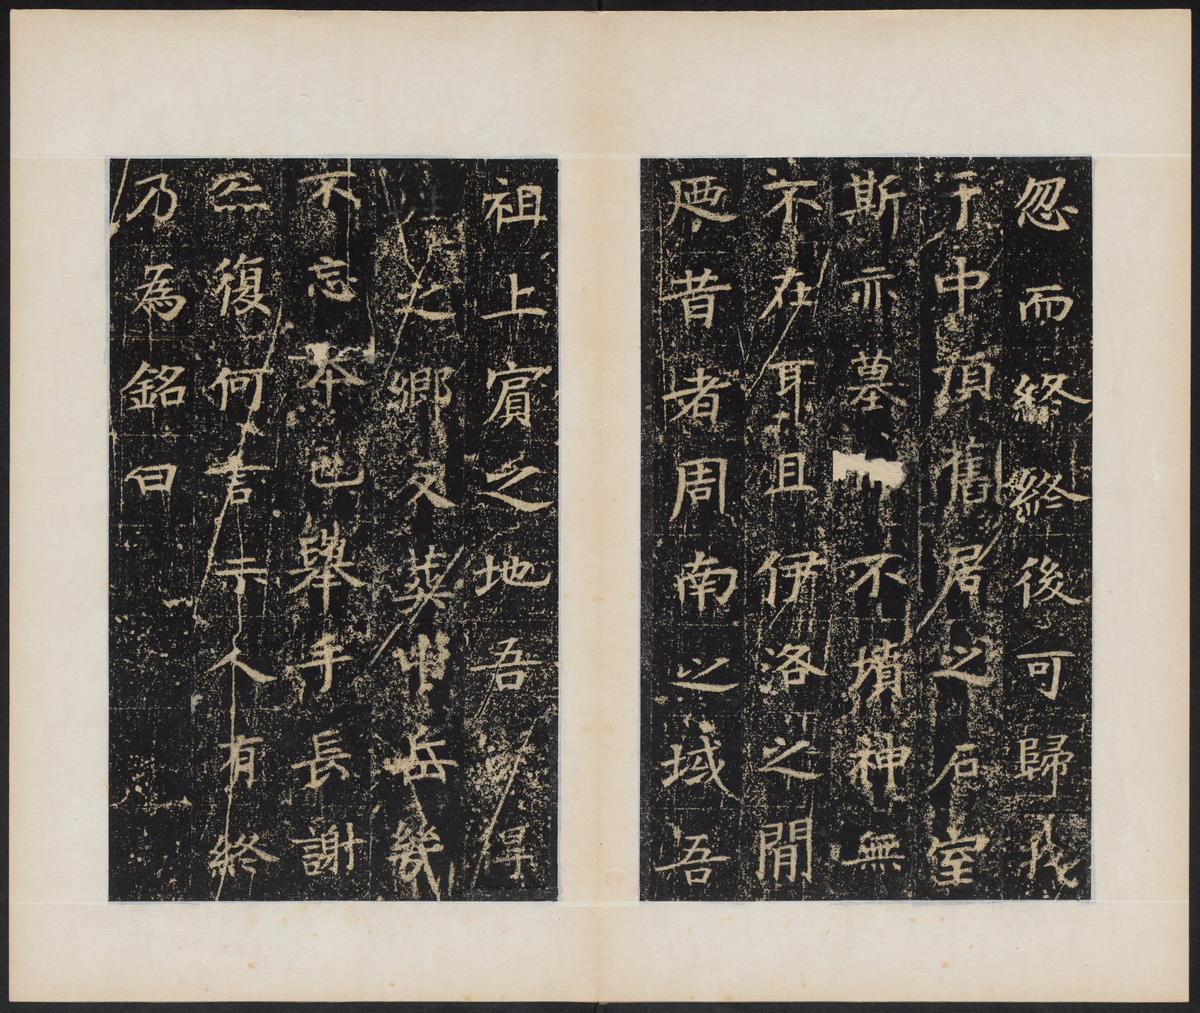 忽而終終後可歸我
于中頂舊居之石室
斯亦墓不墳神無
不在耳且伊洛之閒
迺昔者周南之域吾
祖上賓之地吾得
之鄉又葬中岳幾
不忘本也舉手長謝
亦復何言示人有終
乃為銘曰